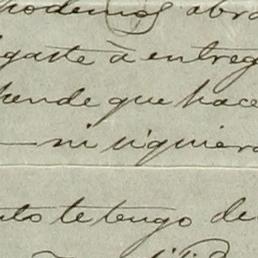 podemos abra
gaste à entreg
hende que hace
ni siquiera
to te tengo de